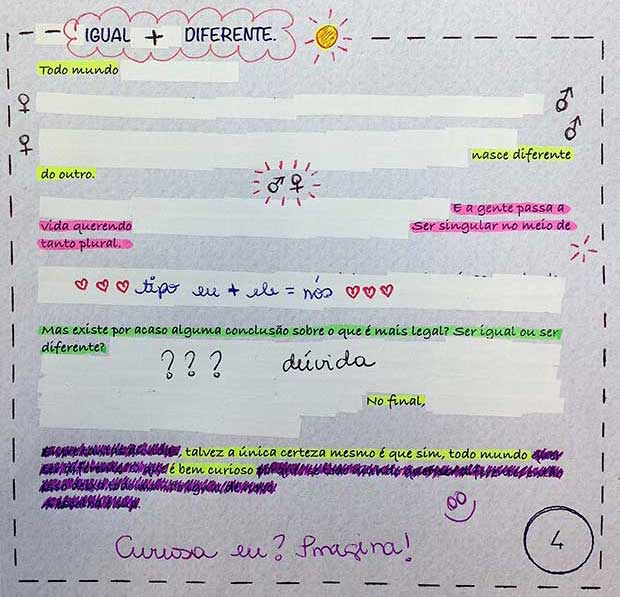 IGUAL + DIFERENTE.
Todo mundo
nasce diferente
do outro.
E a gente passa a
vida querendo
Ser singular no meio de
tanto plural.
tipo eu + ele = nós
Mas existe por acaso alguma conclusão sobre o que é mais legal? Ser igual ou ser
diferente?
? ? ? dúvida
No final,
, talvez a única certeza mesmo é que sim, todo mundo
é bem curioso
Curiosa eu? Imagina!
4